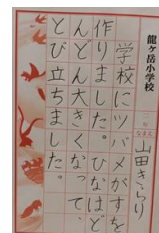 龍ヶ岳小学校
一年
なまえ
山田きらり
学校にツバメがすを
作りました。ひなはど
んどん大きくなって、
とび立ちました。